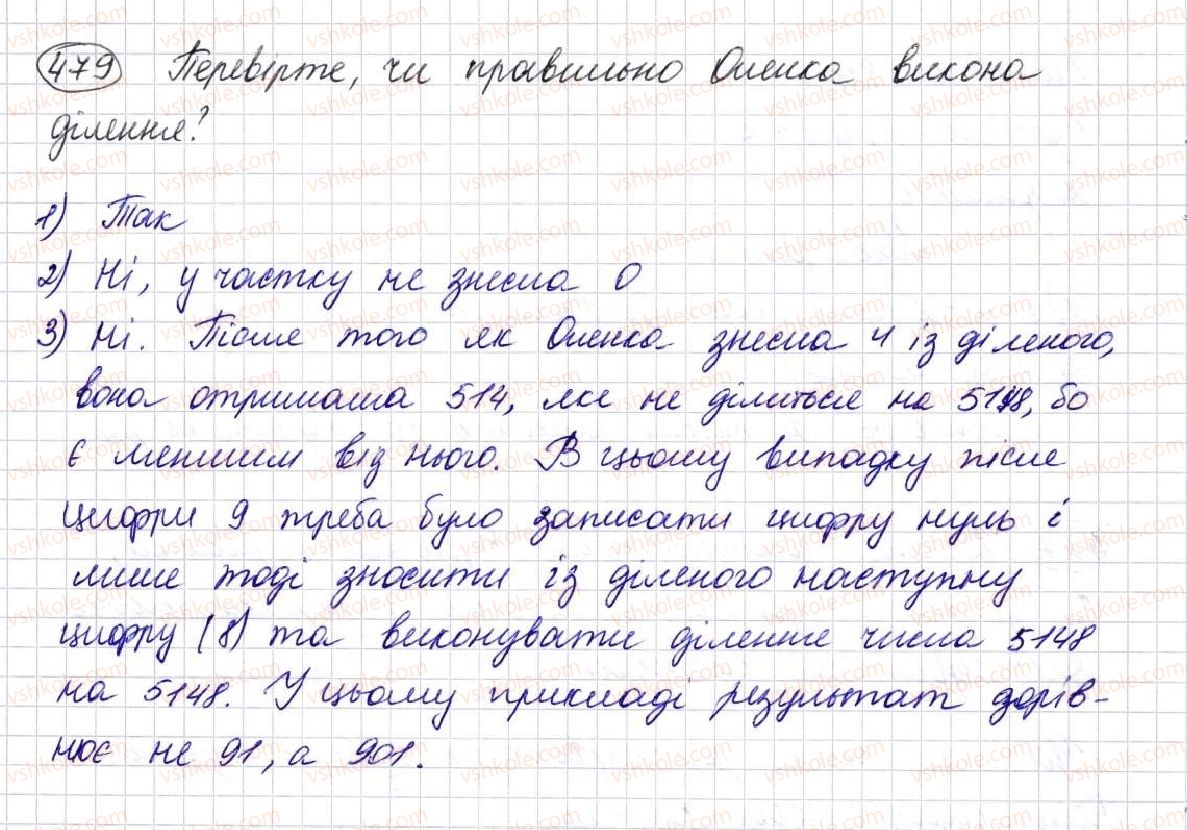 479 Перевірте, чи правильно Оленка викона
ділення?
1) Так
2) Ні, у частку не знесла 0
3) Ні. Після того як Оленка знесла 4 із діленого,
вона отримала 514, яке не ділиться на 5148, бо
є меншим від нього. В цьому випадку після
цифри 9 треба було записати цифру нуль і
лише тоді зносити із діленого наступну
цифру (8) та виконувати ділення числа 5148
на 5148. У цьому прикладі результат дорів-
нює не 91, а 901.